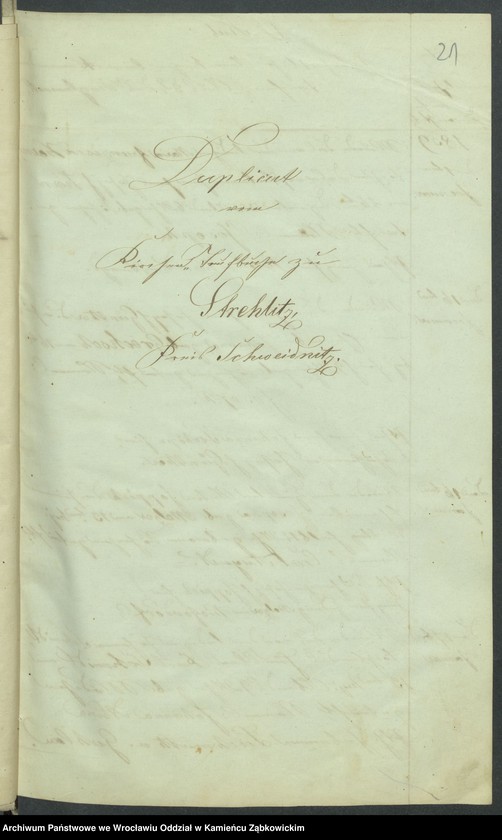 21
Duplicat
vom
Kirchen Taufbuche zu
Strehlitz,
Kreis Schweidnitz.
Archiwum Państwowe we Wrocławiu Oddział w Kamieńcu Ząbkowickim